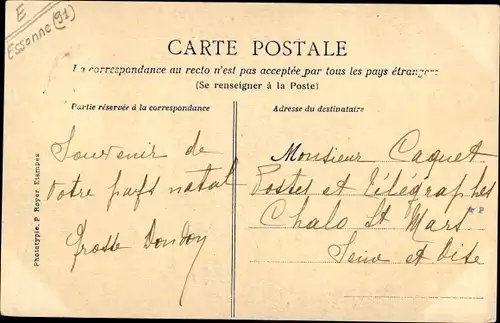 E
Essonne (91)
CARTE POSTALE
La correspondance au recto n'est pas acceptée par tous les pays étrangers
(Se renseigner à la Poste)
Partie réservée à la correspondance
Adresse du destinataire
Souvenir de
votre pays natal
Grosse Dondon
Monsieur Caquet
Postes et Télégraphes
Chalo St Mars
Seine et Oise
Phototypie. P Royer, Etampes